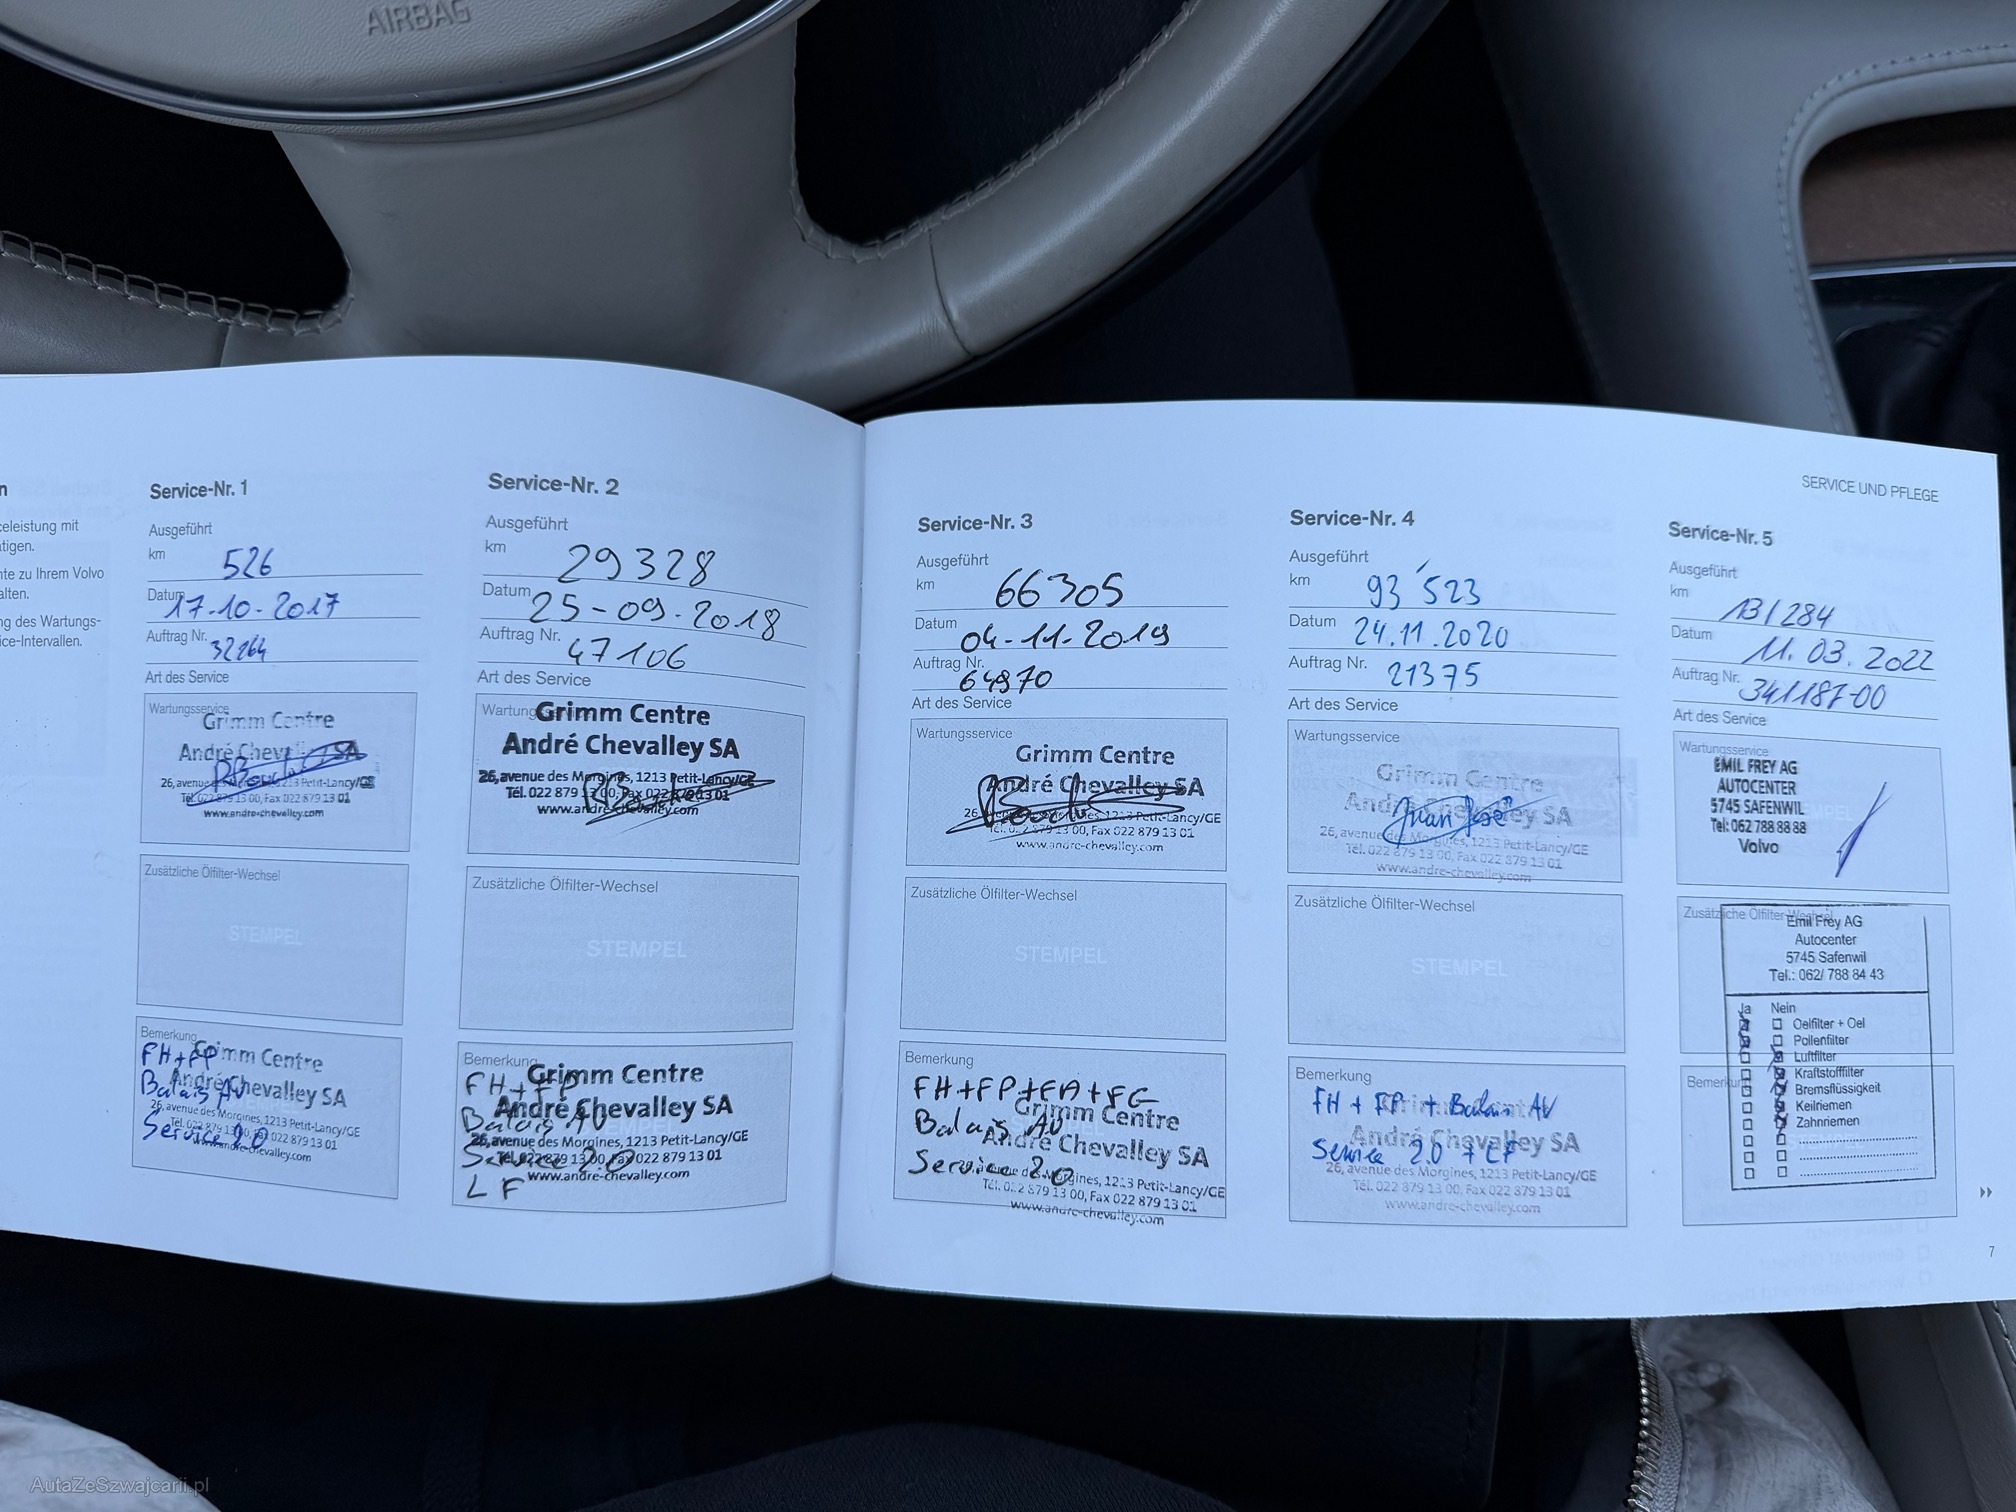 AIRBAG
n
eleistung mit
tigen.
nte zu Ihrem Volvo
alten.
ng des Wartungs-
ice-Intervallen.
Service-Nr. 1
Ausgeführt
km 526
Datum 17-10-2017
Auftrag Nr. 32264
Art des Service
Wartungsservice
Grimm Centre
André Chevalley SA
26, avenue Petit-Lancy/GE
Tél. 022 879 13 00, Fax 022 879 13 01
www.andre-chevalley.com
Zusätzliche Ölfilter-Wechsel
STEMPEL
Bemerkung
FH+FP
Balais AV
Service 2.0
Grimm Centre
André Chevalley SA
26, avenue des Morgines, 1213 Petit-Lancy/GE
Tél. 022 879 13 00, Fax 022 879 13 01
www.andre-chevalley.com
Service-Nr. 2
Ausgeführt
km 29328
Datum 25-09-2018
Auftrag Nr. 47106
Art des Service
Wartungsservice
Grimm Centre
André Chevalley SA
26, avenue des Morgines, 1213 Petit-Lancy/GE
Tél. 022 879 13 00, Fax 022 879 13 01
www.andre-chevalley.com
Zusätzliche Ölfilter-Wechsel
STEMPEL
Bemerkung
FH+FP
Balais AV
Service 2.0
LF
Grimm Centre
André Chevalley SA
26, avenue des Morgines, 1213 Petit-Lancy/GE
Tél. 022 879 13 00, Fax 022 879 13 01
www.andre-chevalley.com
SERVICE UND PFLEGE
Service-Nr. 3
Ausgeführt
km 66305
Datum 04-11-2019
Auftrag Nr. 64970
Art des Service
Wartungsservice
Grimm Centre
André Chevalley SA
26, 1213 Petit-Lancy/GE
Tél. 022 879 13 00, Fax 022 879 13 01
www.andre-chevalley.com
Zusätzliche Ölfilter-Wechsel
STEMPEL
Bemerkung
FH+FP+FA+FG
Balais AV
Service 2.0
Grimm Centre
André Chevalley SA
26, avenue des Morgines, 1213 Petit-Lancy/GE
Tél. 022 879 13 00, Fax 022 879 13 01
www.andre-chevalley.com
Service-Nr. 4
Ausgeführt
km 93'523
Datum 24.11.2020
Auftrag Nr. 21375
Art des Service
Wartungsservice
Grimm Centre
André Chevalley SA
Juan José
26, avenue des Morgines, 1213 Petit-Lancy/GE
Tél. 022 879 13 00, Fax 022 879 13 01
www.andre-chevalley.com
Zusätzliche Ölfilter-Wechsel
STEMPEL
Bemerkung
FH + FP + Balais AV
Service 2.0 + LF
André Chevalley SA
26, avenue des Morgines, 1213 Petit-Lancy/GE
Tél. 022 879 13 00, Fax 022 879 13 01
www.andre-chevalley.com
Service-Nr. 5
Ausgeführt
km 131284
Datum 11.03.2022
Auftrag Nr. 341187-00
Art des Service
Wartungsservice
EMIL FREY AG
AUTOCENTER
5745 SAFENWIL
Tel: 062 788 88 88
Volvo
Zusätzliche Ölfilter-Wechsel
Emil Frey AG
Autocenter
5745 Safenwil
Tel.: 062/ 788 84 43
Ja Nein
Oelfilter + Oel
Pollenfilter
Luftfilter
Kraftstofffilter
Bremsflüssigkeit
Keilriemen
Zahnriemen
Bemerkung
7
AutaZeSzwajcarii.pl